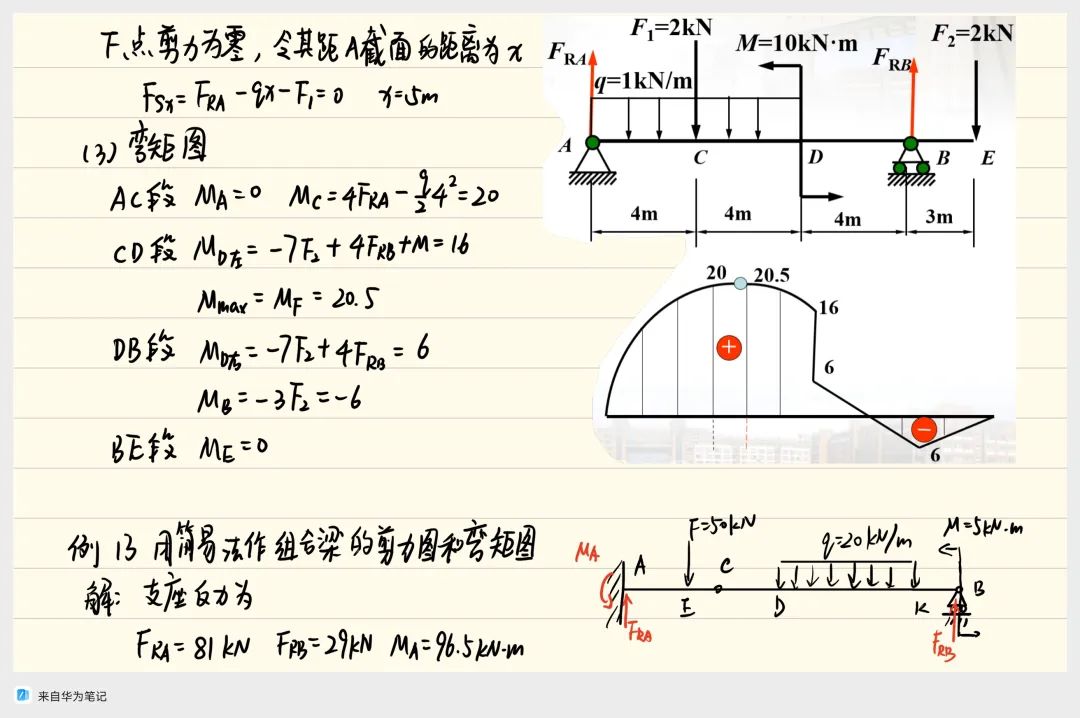 F点剪力为零，令其距A截面的距离为x
F_Sx = F_RA - qx - F₁ = 0 x=5m
(3) 弯矩图
AC段 M_A = 0 M_C = 4F_RA - q/2 4² = 20
CD段 M_D左 = -7F₂ + 4F_RB + M = 16
M_max = M_F = 20.5
DB段 M_D右 = -7F₂ + 4F_RB = 6
M_B = -3F₂ = -6
BE段 M_E = 0
F₁=2kN
F_RA
M=10kN·m
F_RB
F₂=2kN
q=1kN/m
A C D B E
4m 4m 4m 3m
20 20.5
16
+
6
−
6
例13 用简易法作组合梁的剪力图和弯矩图
解: 支座反力为
F_RA = 81 kN F_RB = 29kN M_A = 96.5 kN·m
F=50kN
M=5kN·m
q=20kN/m
M_A A C B
E D K
F_RA
F_RB
来自华为笔记